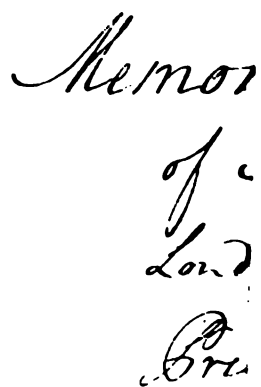 Memor
of
Lond
Pre